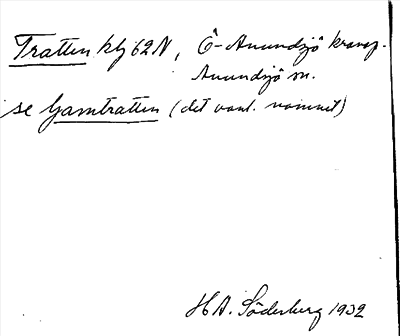 Tratten klj 62N, Ö-Anundsjö kronop.
Anundsjö sn.
se Gamtratten (det vanl. namnet)
H A. Söderberg 1932